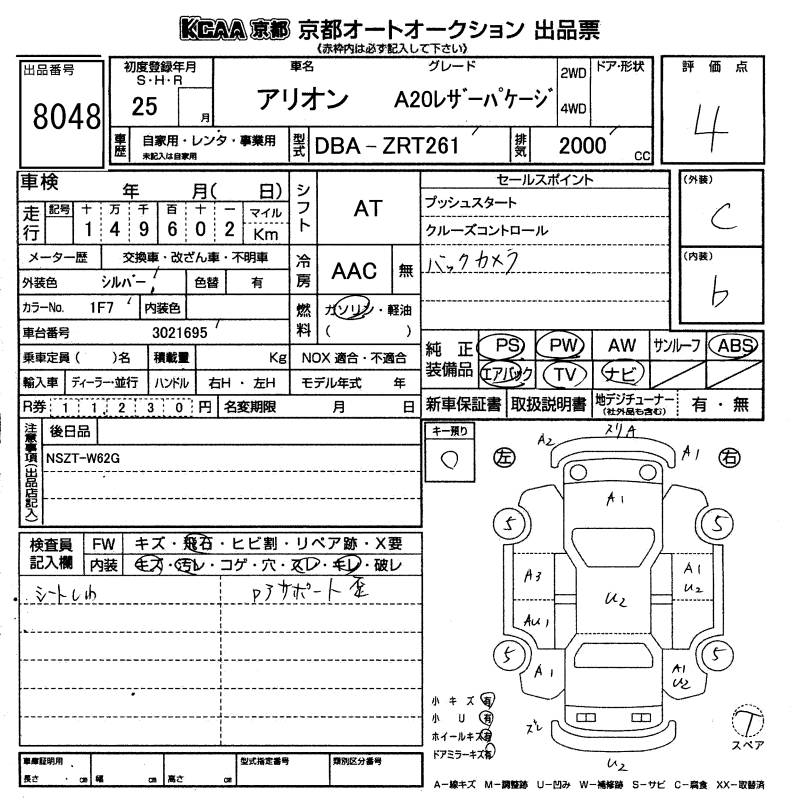 KCAA 京都 京都オートオークション 出品票
《赤枠内は必ず記入して下さい》
出品番号
8048
初度登録年月
S・H・R
25 月
車名
アリオン
グレード
A20レザーパケージ
2WD
4WD
ドア・形状
評価点
4
車歴
自家用・レンタ・事業用
未記入は自家用
型式
DBA-ZRT261
排気
2000 CC
車検 年 月( 日)
走行
記号 十 万 千 百 十 一 マイル
1 4 9 6 0 2 Km
メーター歴 交換車・改ざん車・不明車
外装色 シルバー 色替 有
カラーNo. 1F7 内装色
車台番号 3021695
乗車定員( )名 積載量 Kg
輸入車 ディーラー・並行 ハンドル 右H・左H
R券 1 1 2 3 0 円 名変期限 月 日
シフト AT
冷房 AAC 無
燃料 ガソリン・軽油
( )
NOX 適合・不適合
モデル年式 年
セールスポイント
プッシュスタート
クルーズコントロール
バックカメラ
(外装)
C
(内装)
b
純正装備品
PS PW AW サンルーフ ABS
エアバック TV ナビ
新車保証書 取扱説明書 地デジチューナー (社外品も含む) 有・無
注意事項(出品店記入)
後日品
NSZT-W62G
キー預り
検査員記入欄
FW キズ・飛石・ヒビ割・リペア跡・X要
内装 キズ・汚レ・コゲ・穴・スレ・キレ・破レ
シートしわ
Aサポート歪
左 右
A2
スリA
A1
A1
5 5
A3
A1
U2
U2
AU1
5 5
A1
A1
U2
ズレ
U2
小キズ 有
小U 有
ホイールキズ 有
ドアミラーキズ 有
T
スペア
車庫証明用
長さ ・ cm 幅 cm 高さ cm
型式指定番号
類別区分番号
A-線キズ M-調整跡 U-凹み W-補修跡 S-サビ C-腐食 XX-取替済